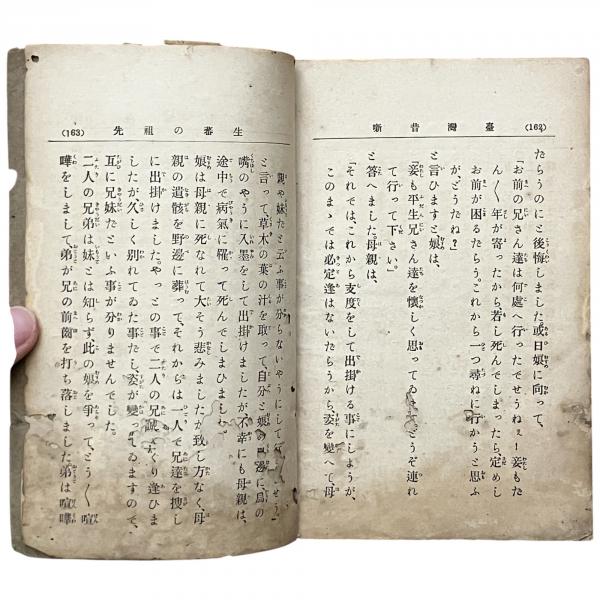 (162) 臺灣昔噺
たらうのにと後悔しました或日娘に向つて、
「お前の兄さん達は何處へ行つたでせうねえー妾もだ
ん〳〵年が寄つたから若し死んでしまつたら定めし
お前が困るだらう。これから一つ尋ねに行かうと思ふ
が、どうだね？」
と言ひますと娘は、
「妾も平生兄さん達を懷しく思つてゐます。どうぞ連れ
て行つて下さい。」
と答へました母親は、
「それでは、これから支度をして出掛ける事にしようが、
このまゝでは必定逢はないだらうから、姿を變へて母
(163) 生蕃の祖先
親や妹だと云ふ事が分らないやうにして
と言つて草木の葉の汁を取つて、自分と娘の口邊に、鳥の
嘴のやうに入墨をして出掛けましたが不幸にも母親は、
途中で病氣に罹つて死んでしまひました。
娘は母親に死なれて大そう悲みましたが致し方なく母
親の遺骸を野邊に葬つて、それからは一人で兄達を捜し
に出掛けました。やつとの事で二人の兄
したが、久しく別れてゐた事だし姿が變つてゐますので、
互に兄妹だといふ事が分りませんでした。
二人の兄弟は妹とは知らず此の娘を爭つて、とう〳〵喧
嘩をしまして弟が兄の前齒を打ち落しました弟は喧嘩